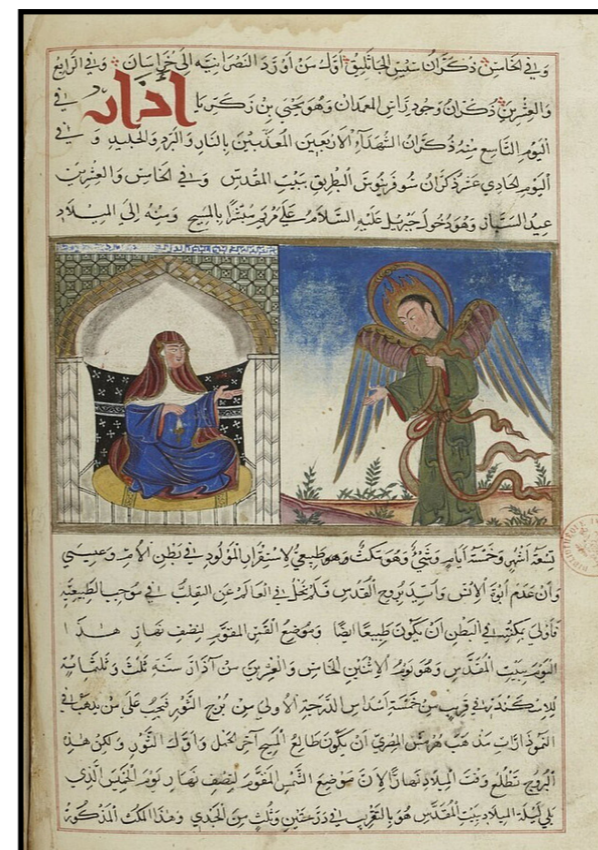 وفي الخامس ذكران سنس الجاثليق اول من اورد النصرانية الى خراسان وفي الرابع
والعشرين ذكران وجود راس المعمدان وهو يحيى بن زكريا اذار في
اليوم التاسع منه ذكران الشهداء الاربعين المعذبين بالنار والبرد والجليد وفي
اليوم الحادي عشر ذكران سوفرنيوس البطريق ببيت المقدس وفي الخامس والعشرين
عيد السبار وهو دخول جبريل عليه السلام على مريم مبشرا بالمسيح ومنه الى الميلاد
تسعة اشهر وخمسة ايام وشيء وهو مكث وهو طبيعي لاستقرار المولود في بطن الام وعيسى
وان عدم ابوة الانس وايد بروح القدس فلم يخل في العالم عن التقلب في موجب الطبيعة
فاولى بمكثه في البطن ان يكون طبيعيا ايضا وموضع القمر المقوم لنصف نهار هذا
اليوم ببيت المقدس وهو يوم الاثنين الخامس والعشرين من آذار سنة ثلث وثلثمائة
للاسكندر في قريب من خمسة اسداس الدرجة الاولى من برج الثور فيجب على من يذهب في
النموذارات مذهب هرمس المصري ان يكون طالع المسيح آخر الحمل واول الثور ولكن هذه
البروج تطلع وقت الميلاد نهارا لان موضع الشمس المقوم لنصف نهار يوم الخميس الذي
يلي ليلة الميلاد ببيت المقدس هو بالتقريب في درجتين وثلث من الجدي وهذا المكث المذكور